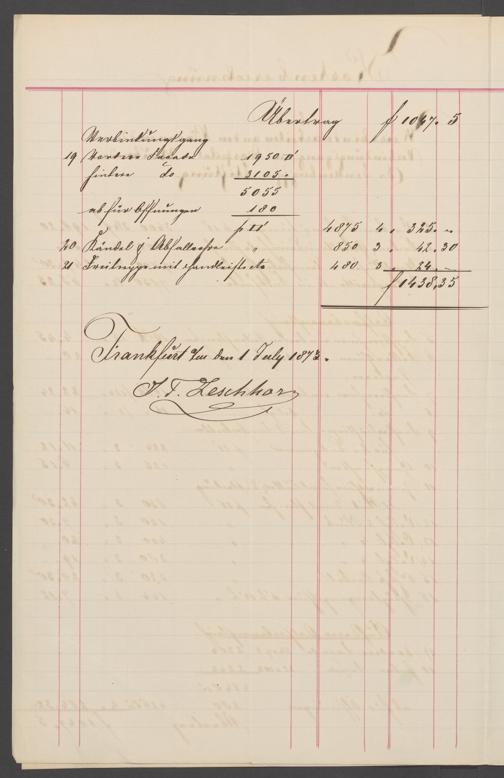 Übertrag f 1047. 5
Verbindungsgang
19 Vordere Facade 1950 □'
hintere do 3105.
5055
ab für Öffnungen 180
p □' 4875 4. 325. „
20 Kändel & Abfallrohre „ 850 3. 42.30
21 Freitreppe mit Handleiste etc 480 3. 24. _
f 1438.35
Frankfurt a/m den 1 July 1873.
J. F. Zeschhor